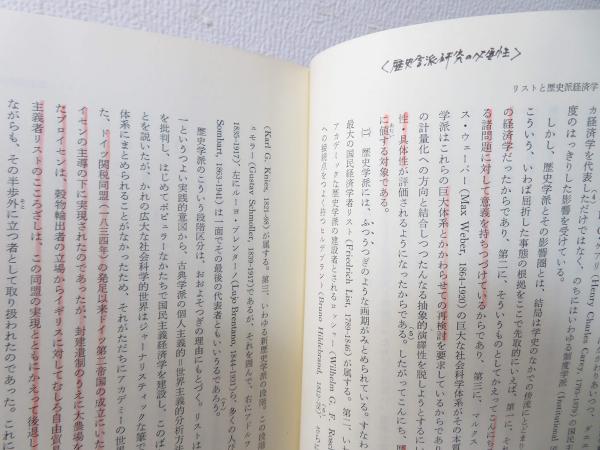 〈歴史学派研究の必要性〉
リストと歴史派経済学
カ経済学を代表しただけでなく、のちにはいわゆる制度学派 (Institutional S
度のはっきりした影響を受けている。
しかし、歴史学派とその影響圏とは、結局は学史のなかでの傍流にとどまり
こういう、いわば屈折した事態の根拠をここで先取的にいえば、第一に、そ
の経済学だったからであり、第二に、そういうものとしてかえってこんにち
る諸問題に対して意義を持ちつづけているからであり、第三に、マルクス
ス・ウェーバー (Max Weber, 1864-1920) の巨大な社会科学体系がその本質
学派はこれらの巨大体系とかかわらせての再検討を要求しているからであり
の計量化への方向と結合しつつたんなる抽象的演繹性を脱しようとするにい
性・具体性が評価されるようになったからである。したがってこんにち、
に値する対象である。
(一) 歴史学派には、ふつうつぎのような画期がみとめられている。すなわ
最大の国民経済学者リスト (Friedrich List, 1789-1846) が属する。第二、いわ
アカデミックな歴史学派の建設者とされるロッシャー (Wilhelm G. F. Rosch
への接近点をもよく持つヒルデブラント (Bruno Hildebrand, 1812-78)
(Karl G. Knies, 1821-98) が属する。第三、いわゆる新歴史学派の段階。この段階
ュモラー (Gustav Schmoller, 1838-1917) であるが、それを囲んで、右にアドルフ
1835-1917) 左にルーヨ・ブレンターノ (Lujo Brentano, 1844-1931) から、多くの人び
Sombart, 1863-1941) は一面でその最後の代表者ともいいうるであろう。
歴史学派のこういう段階区分は、おおよそつぎの理由にもとづく。リストは
一というつよい実践的意図から、古典学派の個人主義的＝世界主義的分析方法
を批判し、はじめてポピュラーなかたちで国民主義経済学を建設し、このば
とを説いたが、かれの広大な社会科学的世界はジャーナリスティックな筆で
体系にまとめられることがなかったため、それがただちにアカデミーの世界
た、ドイツ関税同盟（一八三四年）の発足以来ドイツ第二帝国の成立にいた
イセンの主導の下に実現されたのであったが、封建遺制のうえに大農場を
たプロイセンは、穀物輸出者の立場からイギリスに対してむしろ自由貿易
主義者リストのこころざしは、この同盟の実現とともにかえって後退し
ながらも、その半歩外に立つ者として取り扱われたのであった。これに